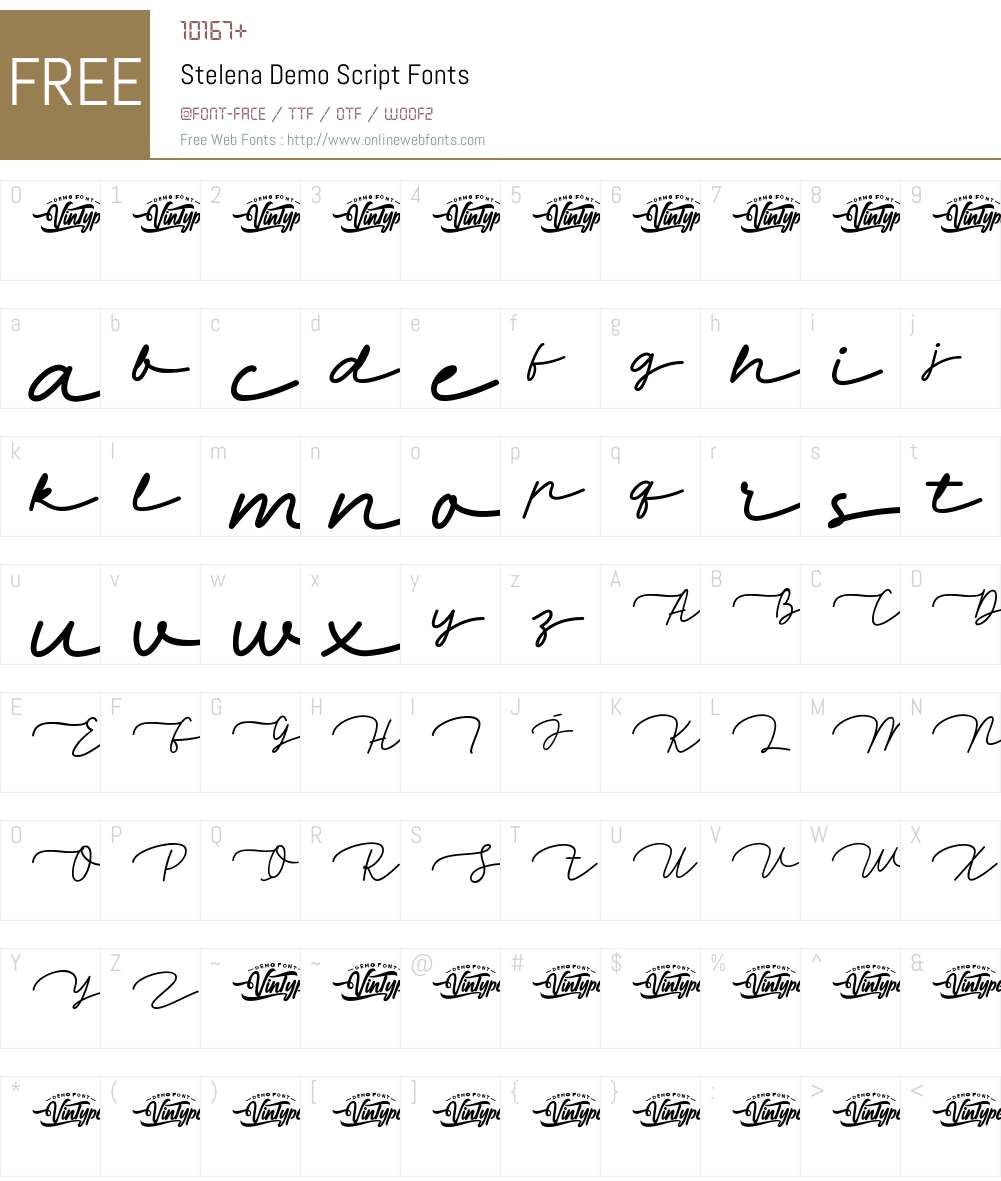 FREE
10167+
Stelena Demo Script Fonts
@FONT-FACE / TTF / OTF / WOOF2
Free Web Fonts : http://www.onlinewebfonts.com
0 1 2 3 4 5 6 7 8 9
DEMO FONT DEMO FONT DEMO FONT DEMO FONT DEMO FONT DEMO FONT DEMO FONT DEMO FONT DEMO FONT DEMO FONT
VinType VinType VinType VinType VinType VinType VinType VinType VinType VinType
a b c d e f g h i j
a b c d e f g h i j
k l m n o p q r s t
k l m n o p q r s t
u v w x y z A B C D
u v w x y z A B C D
E F G H I J K L M N
E F G H I J K L M N
O P Q R S T U V W X
O P Q R S T U V W X
Y Z ~ ~ @ # $ % ^ &
DEMO FONT DEMO FONT DEMO FONT DEMO FONT DEMO FONT DEMO FONT DEMO FONT DEMO FONT
Y Z VinType VinType VinType VinType VinType VinType VinType VinType
* ( ) [ ] { } : > <
DEMO FONT DEMO FONT DEMO FONT DEMO FONT DEMO FONT DEMO FONT DEMO FONT DEMO FONT DEMO FONT DEMO FONT
VinType VinType VinType VinType VinType VinType VinType VinType VinType VinType